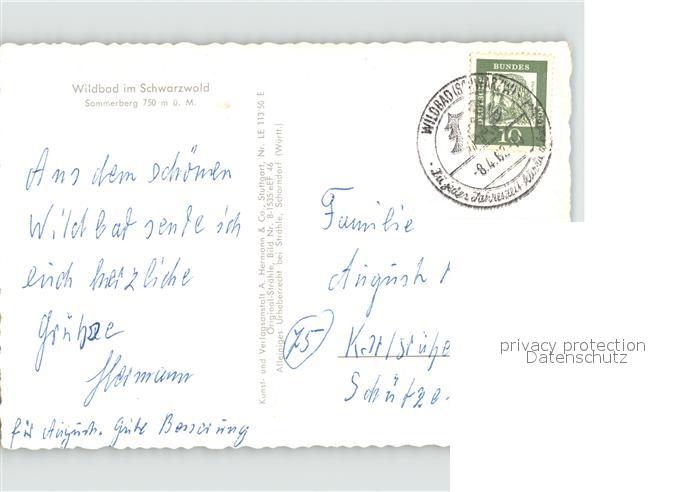 Wildbad im Schwarzwald
Sommerberg 750 m ü. M.
Aus dem schönen
Wildbad sende ich
euch herzliche
Grüße
Hermann
für August. Gute Besserung
Kunst- und Verlagsanstalt A. Hermann & Co., Stuttgart, Nr. LE 113 50 E
Original-Strähle, Bild Nr. B-1535 eEF 46
Alleiniges Urheberrecht bei Strähle, Schorndorf (Württ.)
DEUTSCHE BUNDESPOST
10
WILDBAD (SCHWARZW
-8.4.62
Zu jeder Jahreszeit
Familie
August
75 Karlsruhe
Schütze
privacy protection
Datenschutz